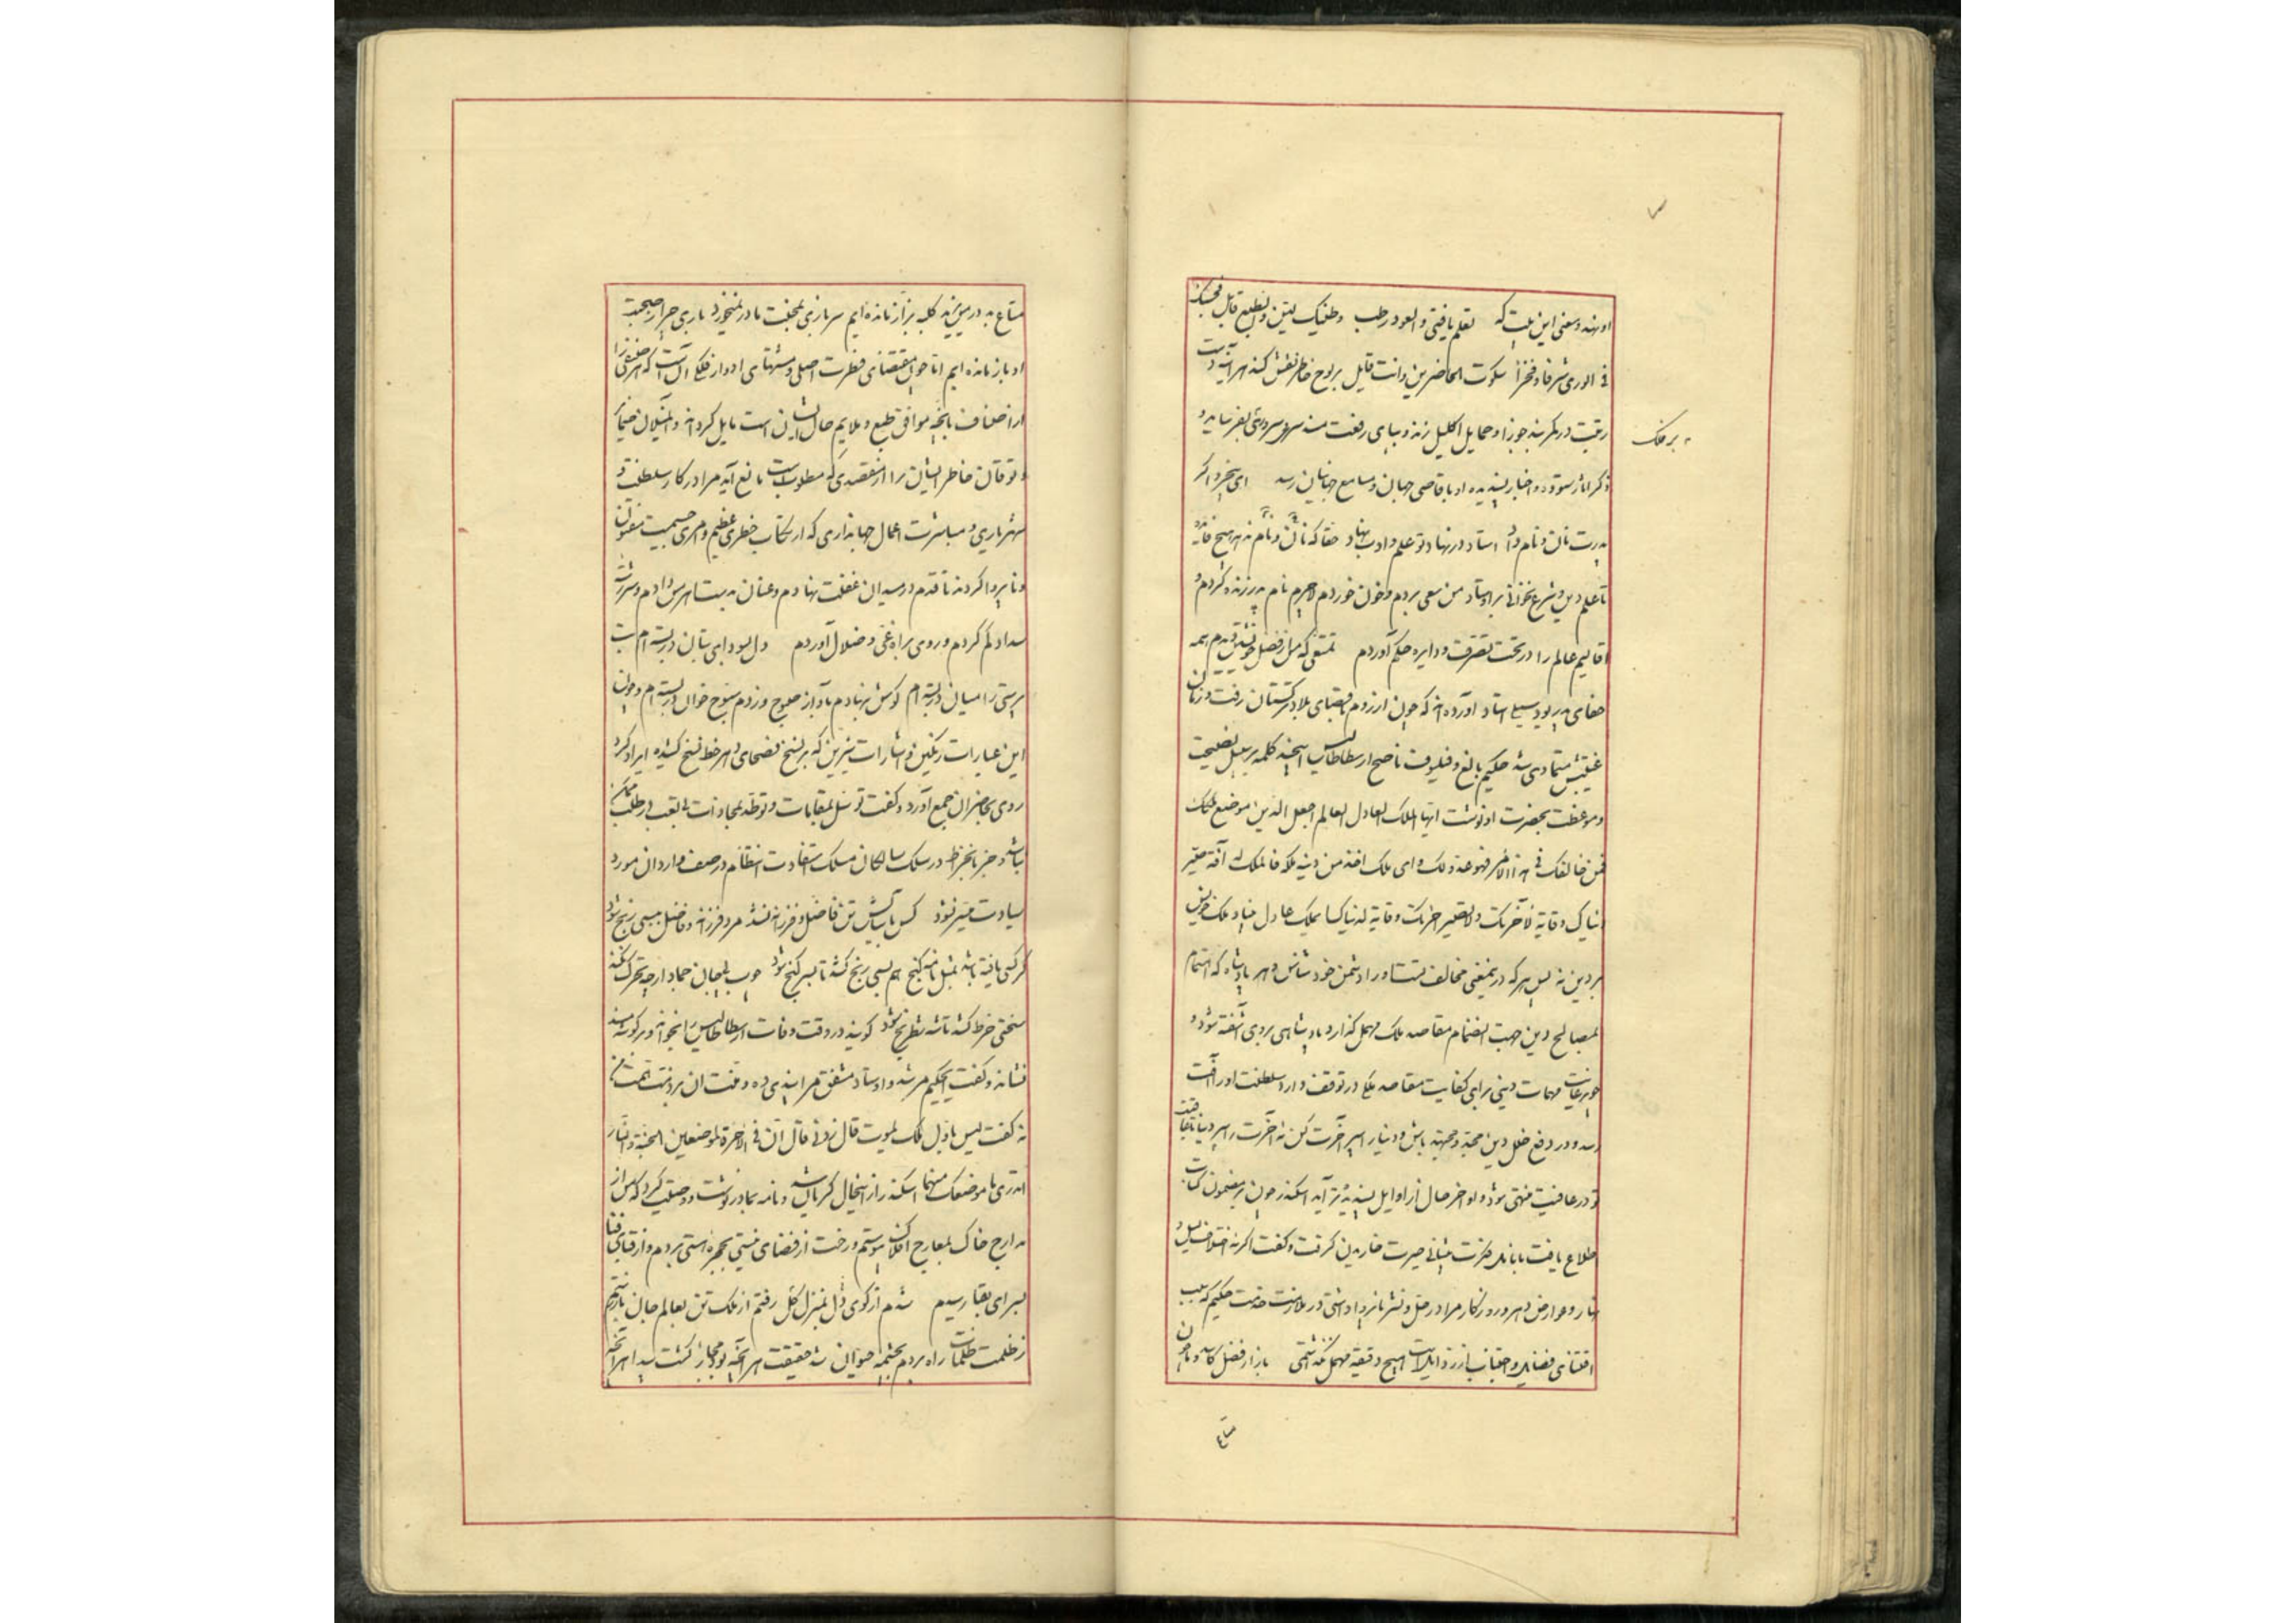 او نهد و معنی این بیت که تعلم یا فتی و العود رطب و طینک لین و الطبع قابل فحسبک
فی الوری شرفا و فخرا سکوت الحاضرین و انت قایل بر لوح خاطر نقش کند هر آینه دست
رتبت در کمربند جوزا و حمایل اکلیل زند و بپای رفعت مسند سروری
بر فلک
ذکر آثار ستوده و اخبار پسندیده او باقاصی جهان و مسامع جهانیان رسد ای پسر اگر
پدرت نان و نام داد استاد در نهاد تو علم و ادب نهاد حقا که نان و نام ندهد هیچ فایده
تا علم دین و شرع نخوانی بر اوستاد من سعی بردم و خون خوردم لاجرم نام پدر زنده کردم و
اقالیم عالم را در تحت تصرف و دایره حکم آوردم که من از فضل خویشتن دیدم همه
جفای پدر بود سیلی استاد آورده‌اند که چون او باقصای بلاد ترکستان رفت و زمان
غیبتش متمادی شد حکیم بالغ و فیلسوف ناصح ارسطاطالیس این چند کلمه بر سبیل نصیحت
و موعظت بحضرت او نوشت ایها الملک العادل العالم اجعل الدین موضع ملکک
فمن خالفک فی هذا الامر فهو عدو لک و ای ملک اخذ من دینه ملکه فالملک له آفة صیر
دنیاک وقایة لآخرتک و لا تصیر آخرتک وقایة لدنیاک ملک عادل بنیاد ملک خویش
بر دین نه پس هر که در این معنی مخالف تست او را دشمن خود شناس و هر پادشاه که اهتمام
بمصالح دین جهت انضمام مقاصد ملک مهمل گذارد پادشاهی بر وی آشفته شود و
چون رعایت مهمات دینی برای کفایت مقاصد ملکی در توقف دارد سلطنت او را آفت
رسد و در دفع خلل دین مجد و مجتهد باش و دنیا را سپر آخرت کن نه آخرت را سپر دنیا تا عاقبت
تو در عافیت منتهی شود و اواخر حال از اوایل پسندیده‌تر آید اسکندر چون بر مضمون کتابت
اطلاع یافت و گفت اگر نه اختلاف لیل و
نهار و عوارض دهر و روزگار مرا در حل و عقد در ملازمت خدمت حکیم که سبب
اقتنای فضایل و اجتناب از رذایل است هیچ دقیقه مهمل نگذاشتمی بازار فضل کاسد و ما چون
متاع
متاع به در پیش نهد کلبه بزاز مانده‌ایم سربازی
او باز مانده‌ایم اما چون مقتضای فطرت اصلی و منتهای ادوار فلکی آنست که هر صنفی را
از اصناف بآنچه موافق طبع و ملایم حال ایشان است مایل گرداند
و توقان خاطر ایشان را از مقصدی که مطلوب است مانع آید مرا در کار سلطنت و
شهریاری و مباشرت اعمال جهانداری که ارتکاب خطری عظیم و امری جسیم است
و نابروا کردند تا قدم در میدان غفلت نهادم و عنان بدست هوس دادم و سررشته
سداد گم کردم و روی براه غی و ضلال آوردم دل بسودای بتان در بسته‌ام بت
پرستی را میان در بسته‌ام گوش بنهادم بآواز صبوح وز دم سبوح خوان در بسته‌ام و چون
این عبارات رنگین و اشارات شیرین که بر نسخ فصحای دهر خط نسخ کشیده ایراد کرد
روی بحاضران جمع آورد و گفت
نباشد و جز در سلک سالکان مسلک سعادت انتظام در صف واردان مورد
سیادت میسر نشود کس بآسایش تن فاضل و فرزانه نشد مرد فرزانه و فاضل ببسی رنج شود
گر کسی یافته باشد بمثل نامه گنج هم بسی رنج کشد تا بسر گنج شود چوب بیجان جماد ار چه تحرک نکند
سختی خرط کشد تا شه شطرنج شود گویند در وقت وفات ارسطاطالیس را بخواند و بر گوشه مسند
نشاند و گفت ای حکیم مرشد و اوستاد مشفق مرا پندی ده
گفت لیس باول ملک یموت قال زدنی قال ان فی الآخرة لموضعین الجنة و النار
اتدری ما موضعک منهما اسکندر از این حال گریان شد و نامه بمادر نوشت و وصیت کرد که من از
مدارج خاک بمعارج افلاک پیوستم و رخت از فضای نیستی بحجره هستی بردم و از فنای فنا
بسرای بقا رسیدم شدم از کوی ذل بمنزل کل رفتم از ملک تن بعالم جان باز رستم
ز ظلمت ظلمات راه بردم بچشمه حیوان شد حقیقت هر آنچه بود مجاز گشت پیدا هر آنچه